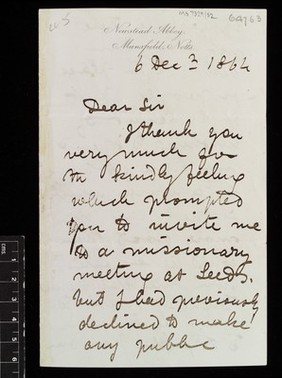 Newstead Abbey,
Mansfield, Notts.
6 Decr 1864
Dear Sir
I thank you
very much for
the kindly feeling
which prompted
you to invite me
to a missionary
meeting at Leeds.
but I had previously
declined to make
any public